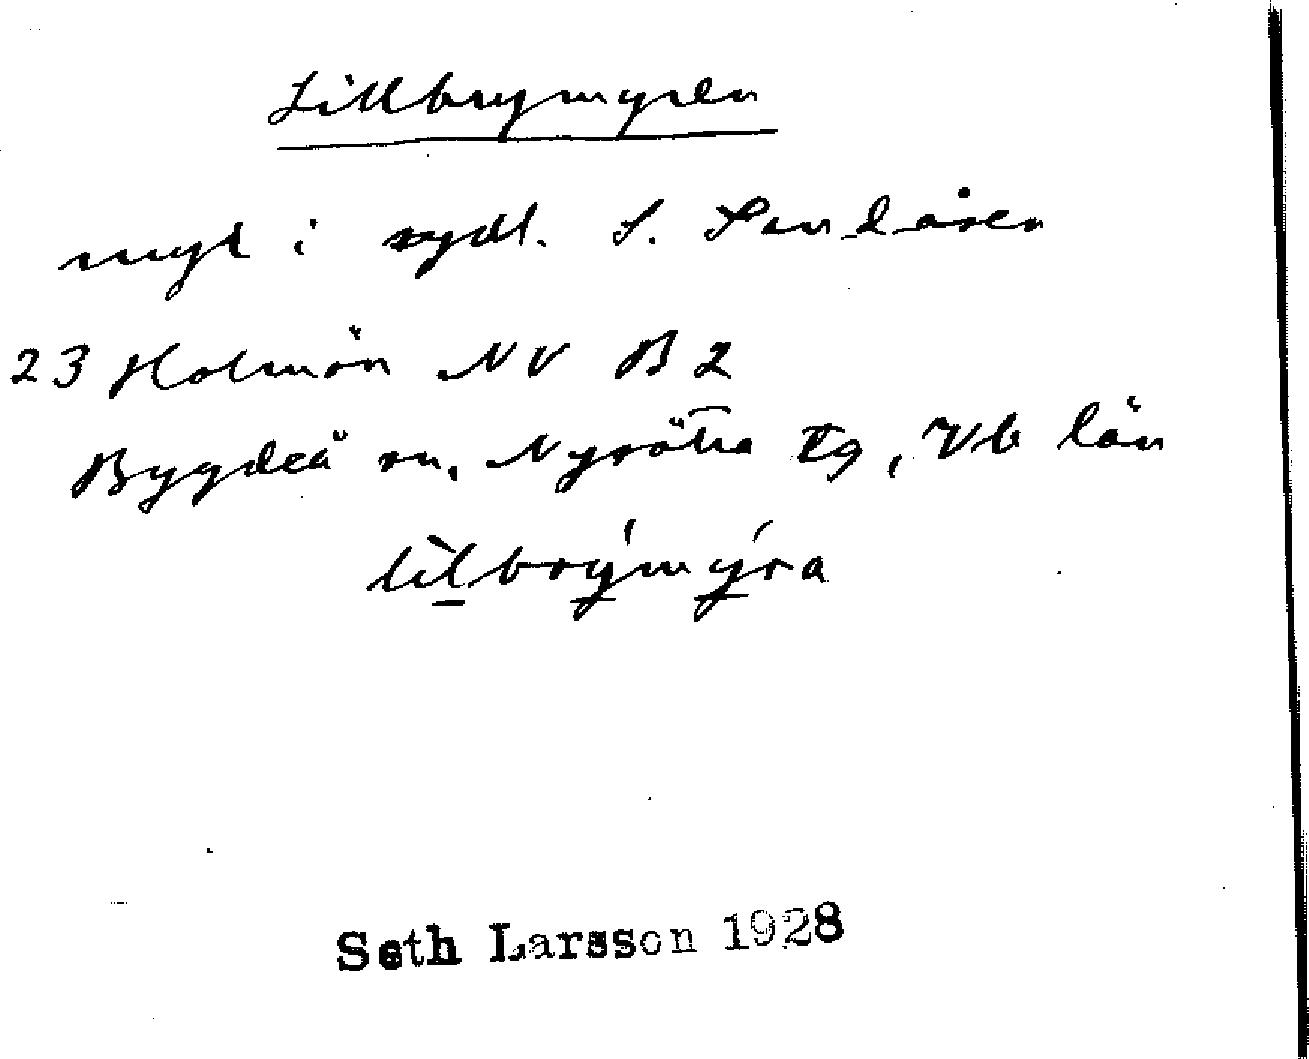 Lillbrymyren
myr i sydl. S. Sandåsen
23 Holmön NV B 2
Bygdeå sn, Nysätra tg, Vb län
lìl̲brýmýra
Seth Larsson 1928